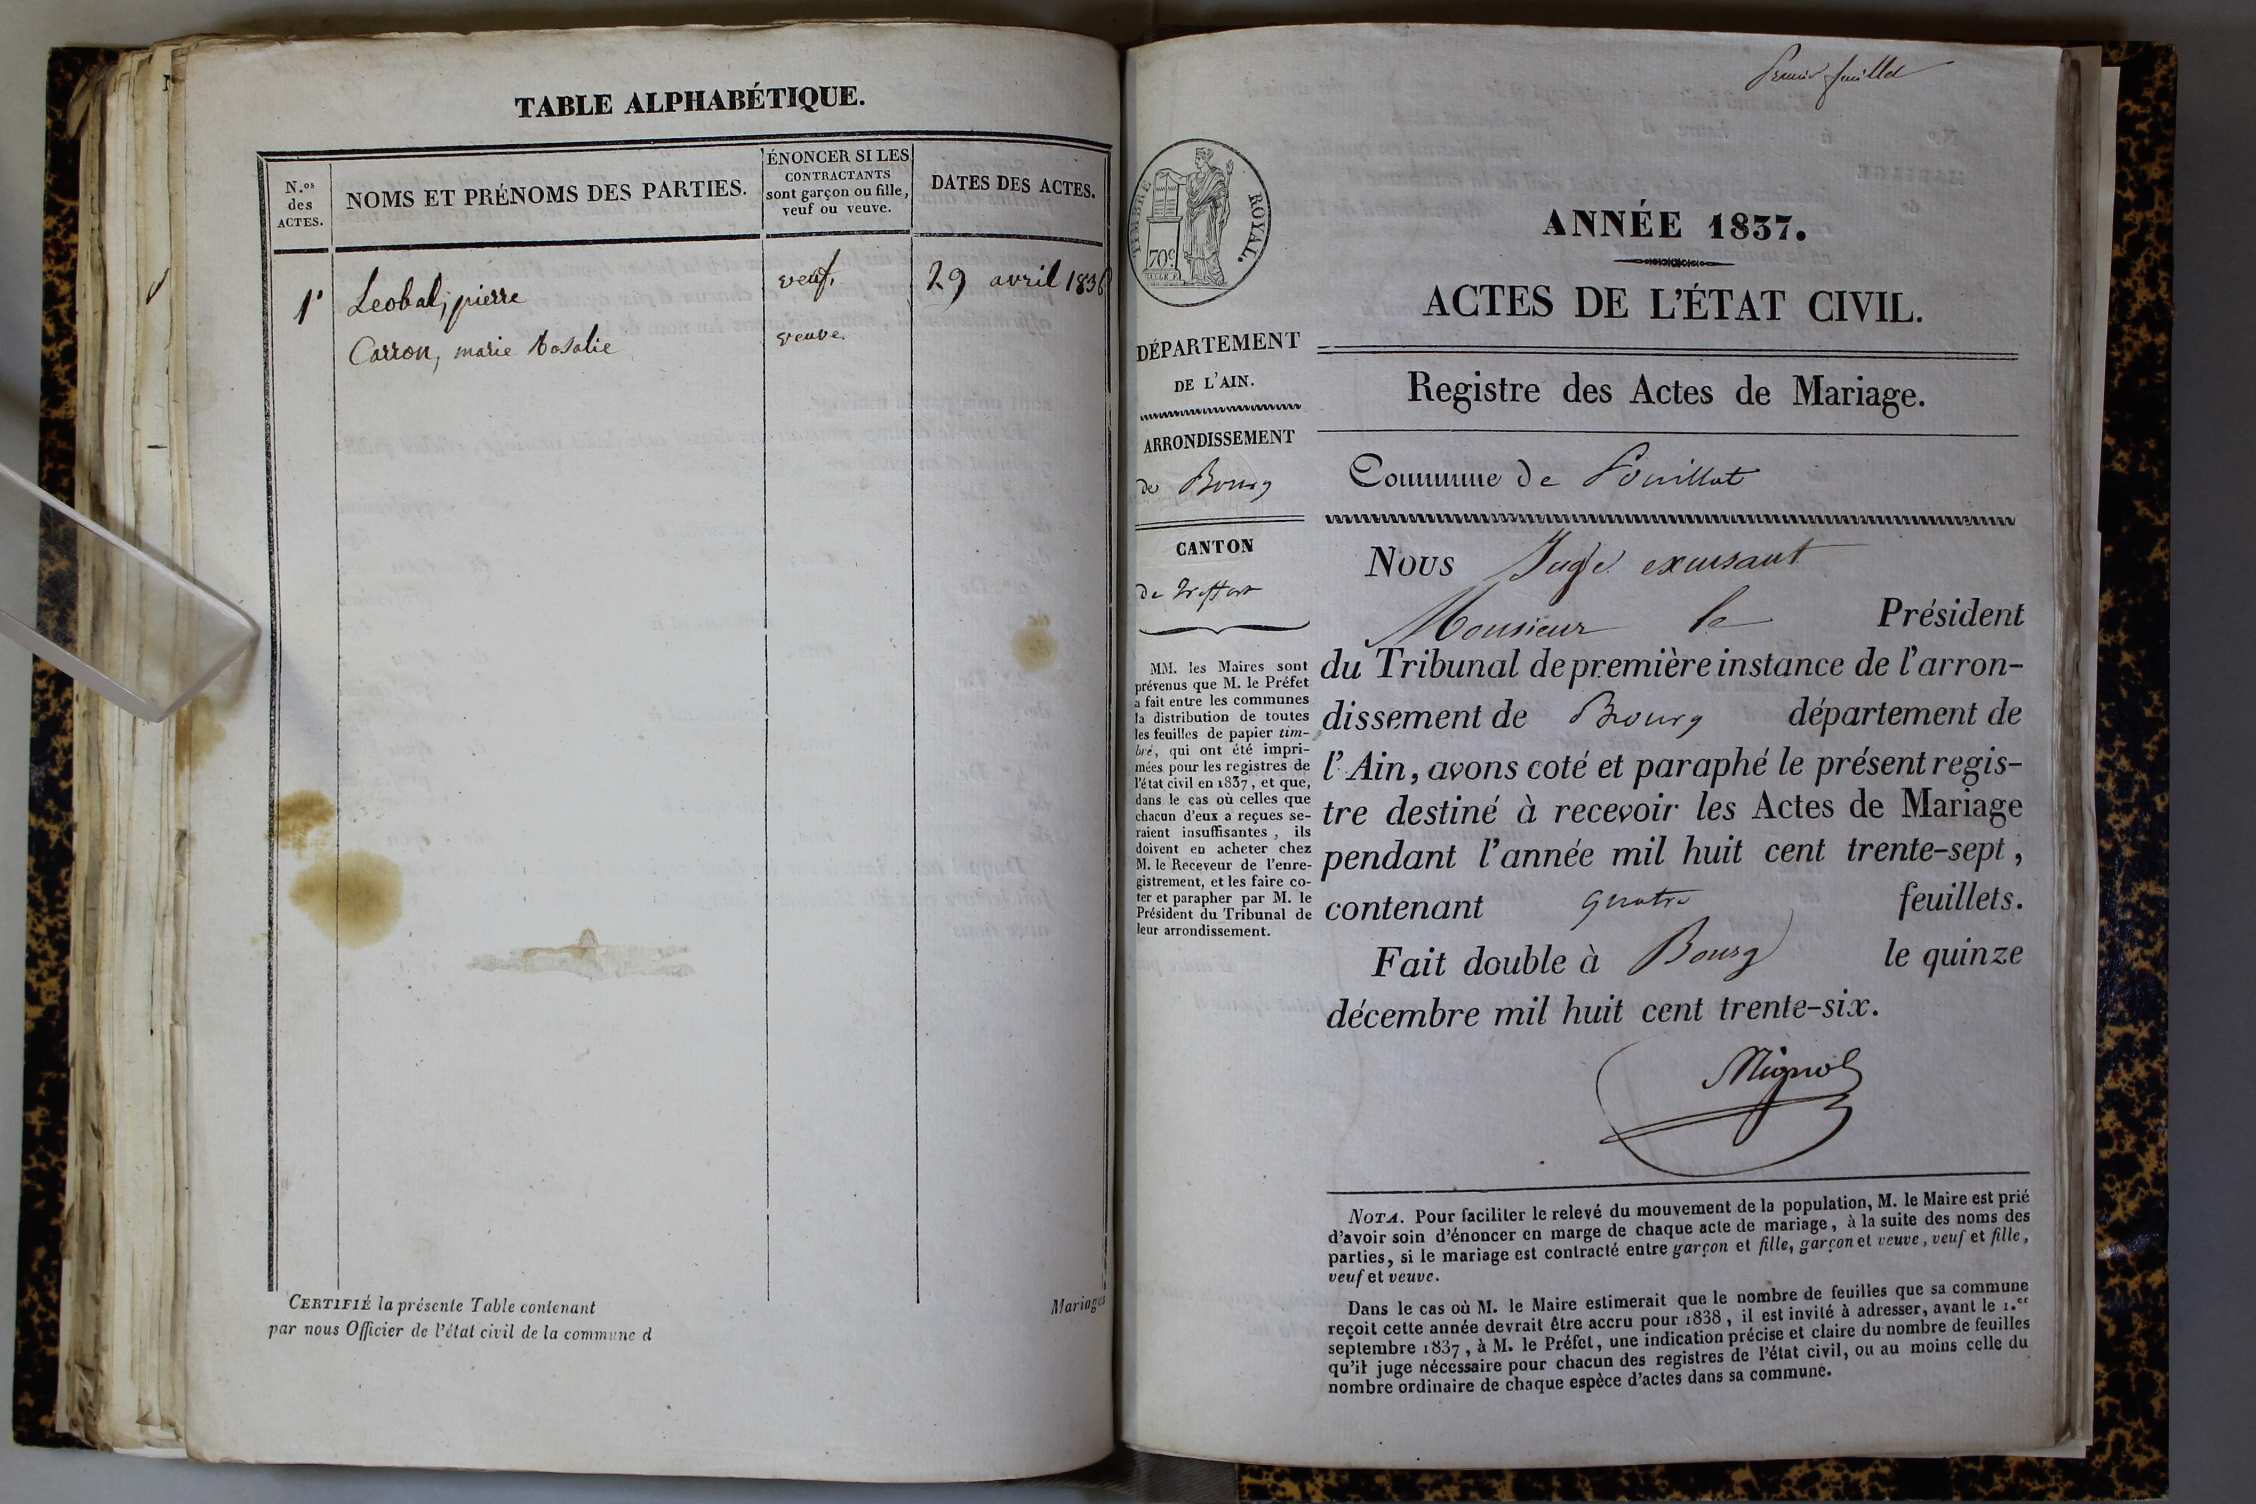 TABLE ALPHABÉTIQUE.
N.os des ACTES.
NOMS ET PRÉNOMS DES PARTIES.
ÉNONCER SI LES
CONTRACTANTS
sont garçon ou fille,
veuf ou veuve.
DATES DES ACTES.
1° Leobal, pierre veuf. 29 avril 1836
Carron, marie Rosalie veuve.
CERTIFIÉ la présente Table contenant Mariages
par nous Officier de l'état civil de la commune d
Premier feuillet
TIMBRE ROYAL.
70c
ANNÉE 1837.
ACTES DE L'ÉTAT CIVIL.
DÉPARTEMENT
DE L'AIN.
ARRONDISSEMENT
de Bourg
CANTON
de Treffort
MM. les Maires sont
prévenus que M. le Préfet
a fait entre les communes
la distribution de toutes
les feuilles de papier tim-
bré, qui ont été impri-
mées pour les registres de
l'état civil en 1837, et que,
dans le cas où celles que
chacun d'eux a reçues se-
raient insuffisantes, ils
doivent en acheter chez
M. le Receveur de l'enre-
gistrement, et les faire co-
ter et parapher par M. le
Président du Tribunal de
leur arrondissement.
Registre des Actes de Mariage.
Commune de Pouillat
Nous Juge excusant
Monsieur le Président
du Tribunal de première instance de l'arron-
dissement de Bourg département de
l'Ain, avons coté et paraphé le présent regis-
tre destiné à recevoir les Actes de Mariage
pendant l'année mil huit cent trente-sept,
contenant quatre feuillets.
Fait double à Bourg le quinze
décembre mil huit cent trente-six.
NOTA. Pour faciliter le relevé du mouvement de la population, M. le Maire est prié
d'avoir soin d'énoncer en marge de chaque acte de mariage, à la suite des noms des
parties, si le mariage est contracté entre garçon et fille, garçon et veuve, veuf et fille,
veuf et veuve.
Dans le cas où M. le Maire estimerait que le nombre de feuilles que sa commune
reçoit cette année devrait être accru pour 1838, il est invité à adresser, avant le 1.er
septembre 1837, à M. le Préfet, une indication précise et claire du nombre de feuilles
qu'il juge nécessaire pour chacun des registres de l'état civil, ou au moins celle du
nombre ordinaire de chaque espèce d'actes dans sa commune.